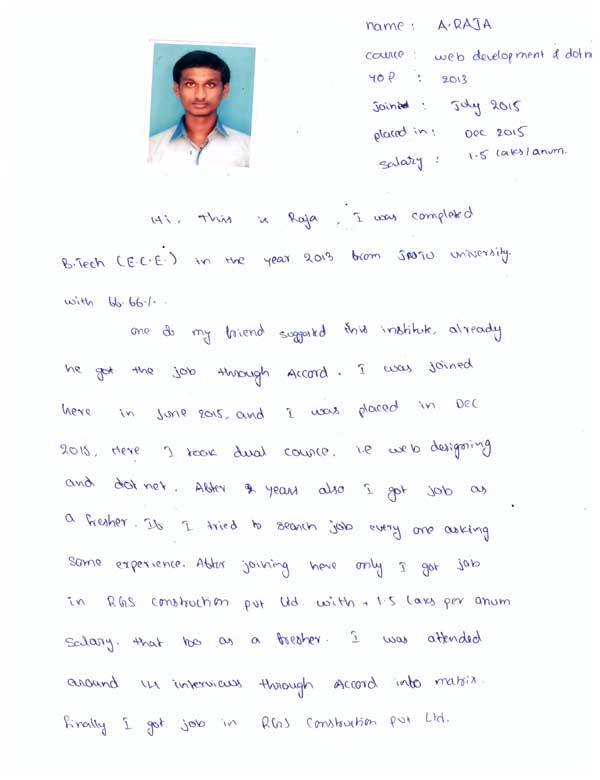 name : A.RAJA
cource : web development & dotn
YOP : 2013
Joined : July 2015
placed in : Dec 2015
salary : 1.5 laks/anum.
Hi, This is Raja. I was completed
B.Tech (E.C.E.) in the year 2013 from JNTU university.
with 66.66%.
one of my friend suggested this institute, already
he got the job through Accord. I was joined
here in June 2015, and I was placed in Dec
2015, Here I took dual cource. i.e web designing
and dot net. After 2 years also I got job as
a fresher. If I tried to search job every one asking
some experience. After joining here only I got job
in RGS construction pvt Ltd. with 1.5 laks per anum
salary. that too as a fresher. I was attended
around 14 interviews through Accord info matrix.
finally I got job in RGS construction pvt Ltd.